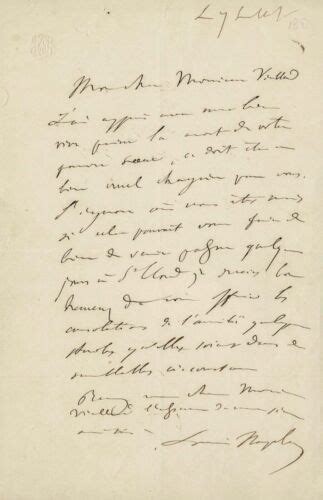 Ly Lett
Mon cher Monsieur Vieillard
J'ai appris avec une bien
vive peine la mort de votre
pauvre sœur, ce doit être un
bien cruel chagrin pour vous.
J'ignore où vous êtes mais
si cela pouvait vous faire du
bien de venir passer quelques
jours à St Cloud je serais bien
heureux de vous offrir les
consolations de l'amitié quelques
stériles qu'elles soient dans de
semblables circonstances
Recevez mon cher Monsieur
Vieillard l'assurance de mon
amitié
Louis Napoléon